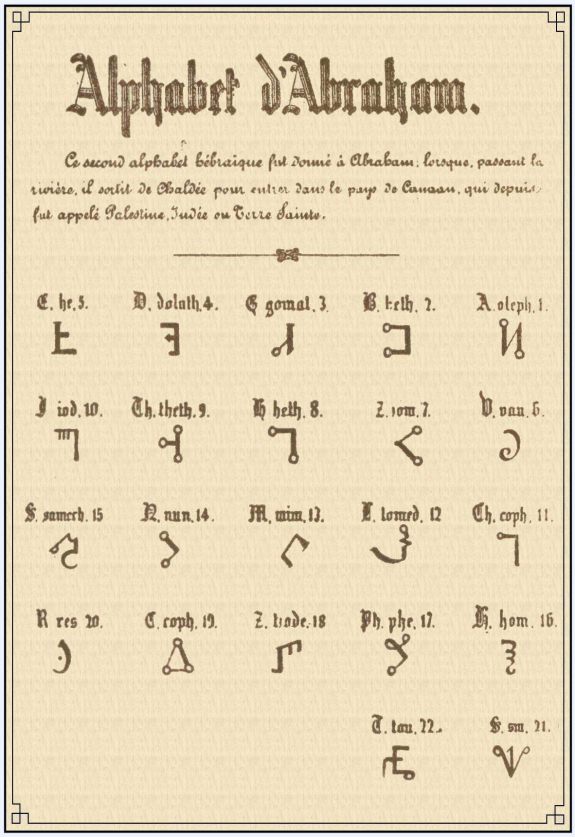 Alphabet d'Abraham.
Ce second alphabet hébraique fut donné à Abraham; lorsque, passant la
rivière, il sortit de Chaldée pour entrer dans le pays de Canaan, qui depuis
fut appelé Palestine, Judée ou Terre Sainte.
E. he, 5. D. doluth, 4. G gomal, 3. B. beth, 2. A. oleph, 1.
J iod, 10. Th. theth, 9. H heth, 8. Z. 7. V. vau, 6.
S. samech. 15 N. nun, 14. M, mim, 13. L. lomed, 12 Ch. coph, 11.
R res 20. C. coph, 19. Z. 18 Ph. phe, 17. H. hom, 16.
T. tau, 22. S. sin, 21.